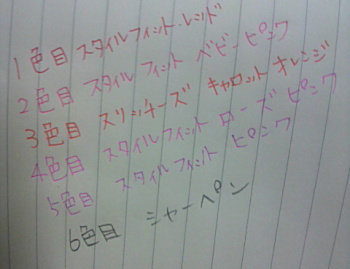 1色目 スタイルフィット・レッド
2色目 スタイルフィット ベビーピンク
3色目 スリッチーズ キャロットオレンジ
4色目 スタイルフィット ローズピンク
5色目 スタイルフィット ピンク
6色目 シャーペン